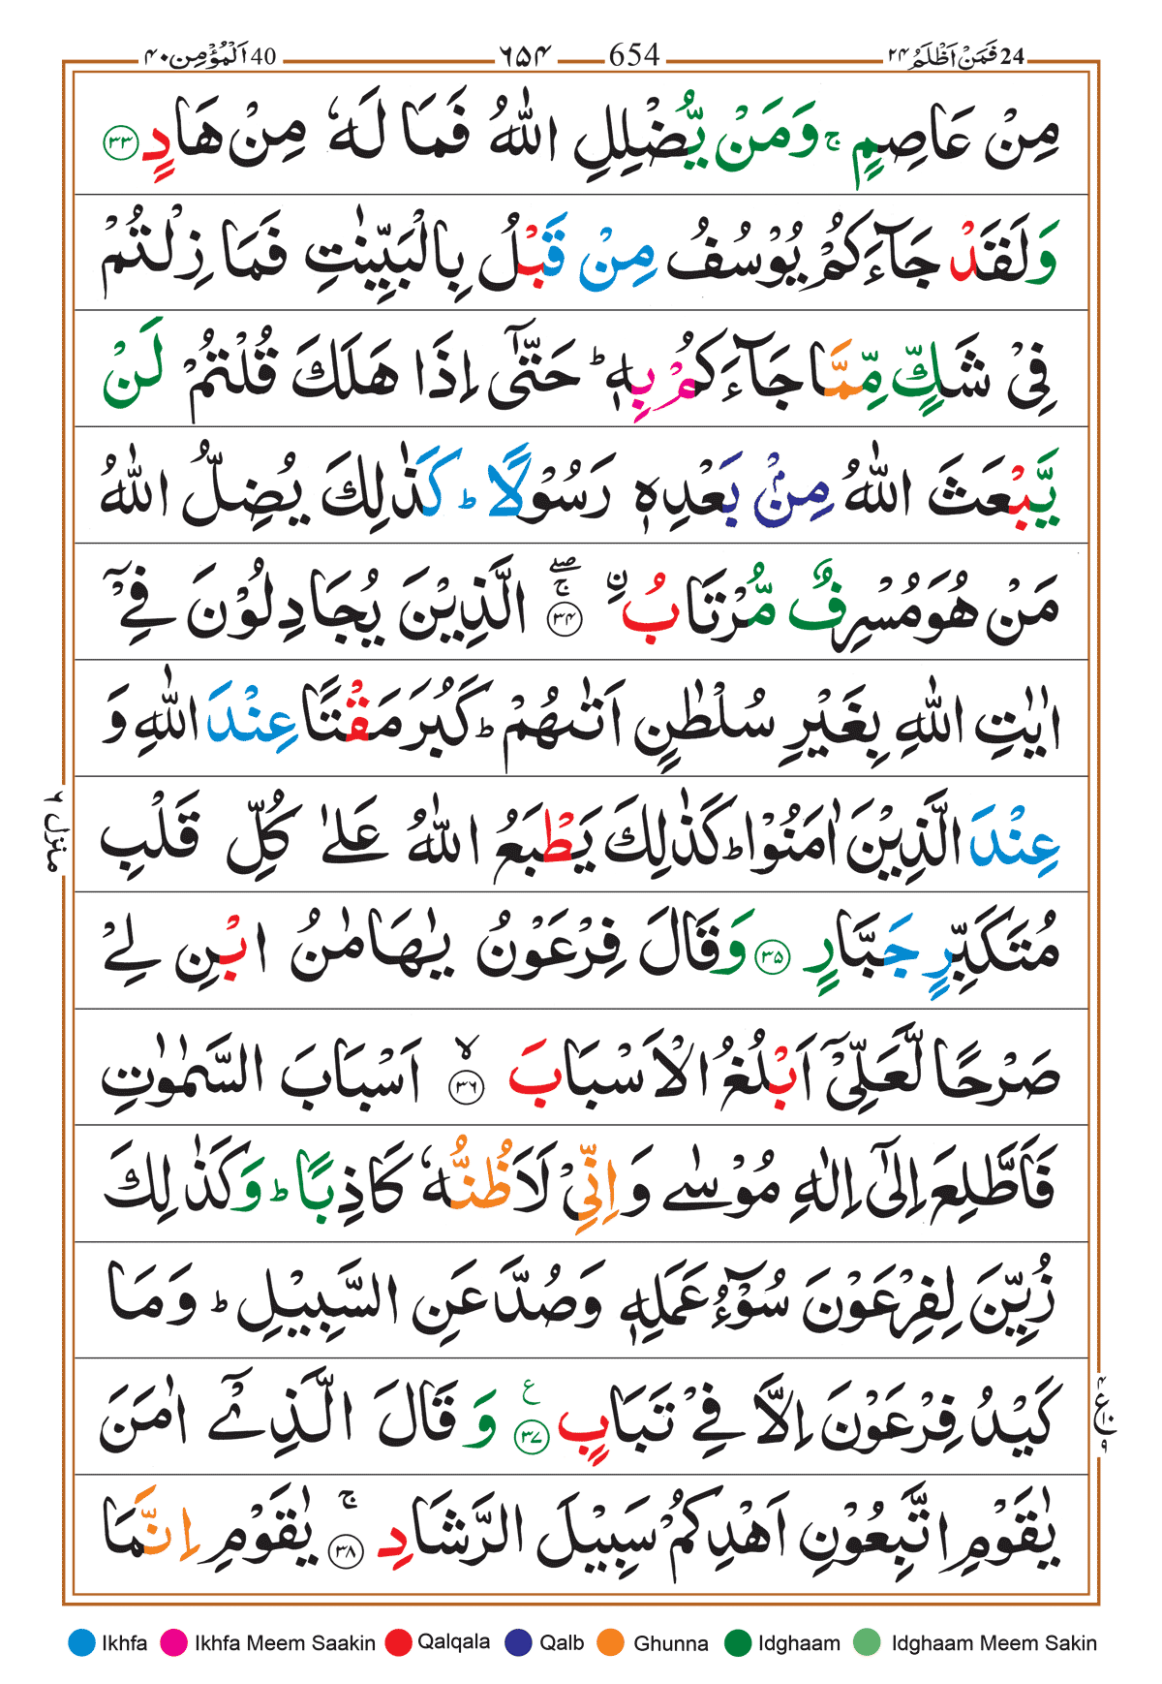 24 فَمَنْ اَظْلَمُ ۲۴ 654 ۶۵۴ 40 اَلْمُؤْمِن ۴۰
مِنْ عَاصِمٍ ۚ وَمَنْ يُّضْلِلِ اللّٰهُ فَمَا لَهٗ مِنْ هَادٍ ۳۳
وَلَقَدْ جَآءَكُمْ يُوْسُفُ مِنْ قَبْلُ بِالْبَيِّنٰتِ فَمَا زِلْتُمْ
فِيْ شَكٍّ مِّمَّا جَآءَكُمْ بِهٖ ؕ حَتّٰٓى اِذَا هَلَكَ قُلْتُمْ لَنْ
يَّبْعَثَ اللّٰهُ مِنْۢ بَعْدِهٖ رَسُوْلًا ؕ كَذٰلِكَ يُضِلُّ اللّٰهُ
مَنْ هُوَ مُسْرِفٌ مُّرْتَابُ ۨ ۚۖ ۳۴ الَّذِيْنَ يُجَادِلُوْنَ فِيْٓ
اٰيٰتِ اللّٰهِ بِغَيْرِ سُلْطٰنٍ اَتٰىهُمْ ؕ كَبُرَ مَقْتًا عِنْدَ اللّٰهِ وَ
عِنْدَ الَّذِيْنَ اٰمَنُوْا ؕ كَذٰلِكَ يَطْبَعُ اللّٰهُ عَلٰى كُلِّ قَلْبِ
مُتَكَبِّرٍ جَبَّارٍ ۳۵ وَقَالَ فِرْعَوْنُ يٰهَامٰنُ ابْنِ لِيْ
صَرْحًا لَّعَلِّيْٓ اَبْلُغُ الْاَسْبَابَ ۙ ۳۶ اَسْبَابَ السَّمٰوٰتِ
فَاَطَّلِعَ اِلٰٓى اِلٰهِ مُوْسٰى وَ اِنِّيْ لَاَظُنُّهٗ كَاذِبًا ؕ وَكَذٰلِكَ
زُيِّنَ لِفِرْعَوْنَ سُوْٓءُ عَمَلِهٖ وَصُدَّ عَنِ السَّبِيْلِ ؕ وَمَا
كَيْدُ فِرْعَوْنَ اِلَّا فِيْ تَبَابٍ ۳۷ ع وَ قَالَ الَّذِيْٓ اٰمَنَ
يٰقَوْمِ اتَّبِعُوْنِ اَهْدِكُمْ سَبِيْلَ الرَّشَادِ ۚ ۳۸ يٰقَوْمِ اِنَّمَا
منزل ۶
Ikhfa Ikhfa Meem Saakin Qalqala Qalb Ghunna Idghaam Idghaam Meem Sakin